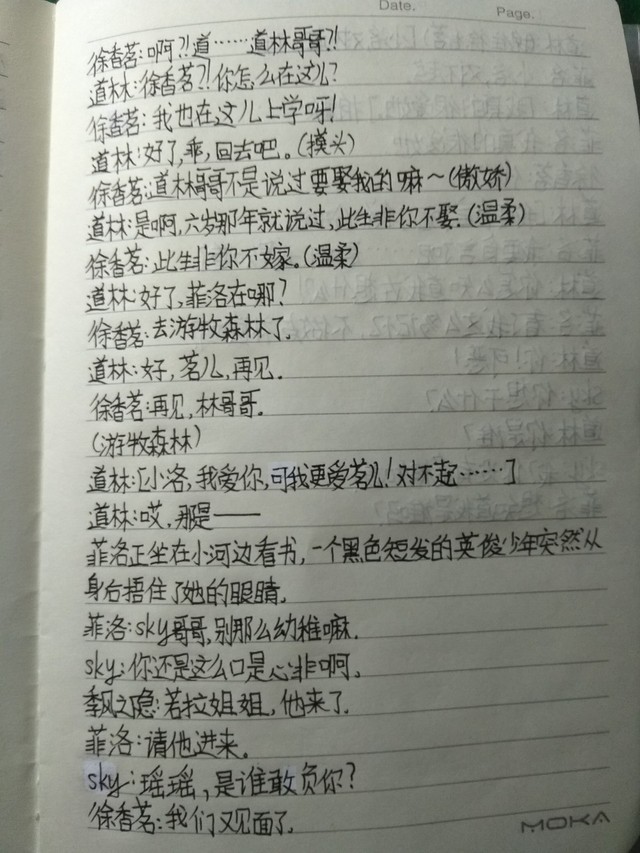 Date.
Page.
徐香茗:啊?!道……道林哥哥?!
道林:徐香茗?!你怎么在这儿?
徐香茗:我也在这儿上学呀!
道林:好了,乖,回去吧。(摸头)
徐香茗:道林哥哥不是说过要娶我的嘛~(傲娇)
道林:是啊,六岁那年就说过,此生非你不娶.(温柔)
徐香茗:此生非你不嫁。(温柔)
道林:好了,菲洛在哪?
徐香茗:去游牧森林了.
道林:好,茗儿,再见.
徐香茗:再见,林哥哥.
(游牧森林)
道林:[小洛,我爱你,可我更爱茗儿!对不起……]
道林:哎,那是——
菲洛正坐在小河边看书,一个黑色短发的英俊少年突然从
身后捂住了她的眼睛。
菲洛:sky哥哥,别那么幼稚嘛.
sky:你还是这么口是心非啊。
季风之隐:若拉姐姐,他来了.
菲洛:请他进来。
sky:瑶瑶,是谁敢负你?
徐香茗:我们又见面了.
MOKA